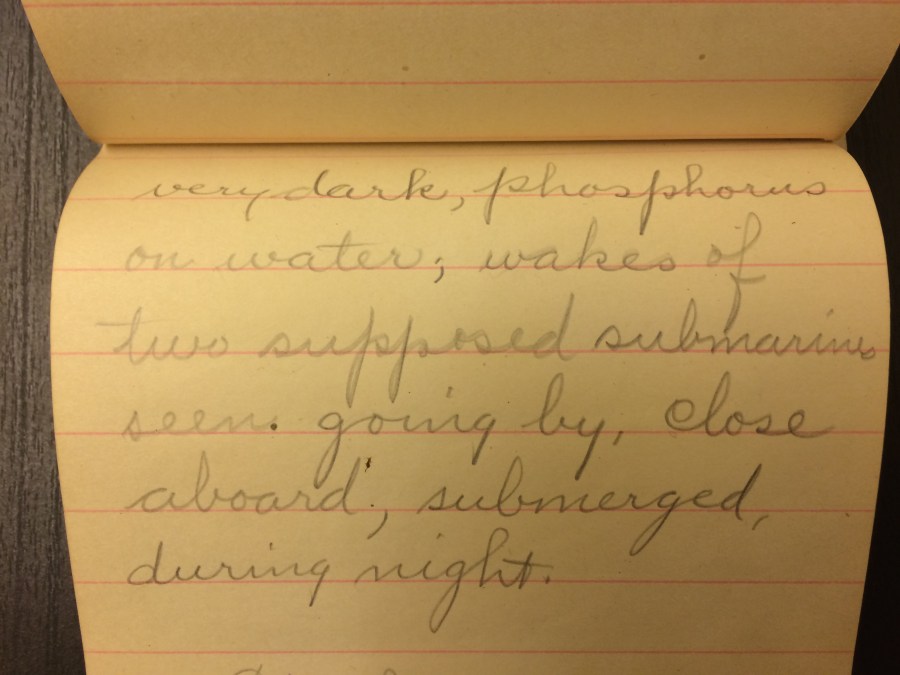 very dark, phosphorus
on water; wakes of
two supposed submarines
seen. going by, close
aboard; submerged,
during night.